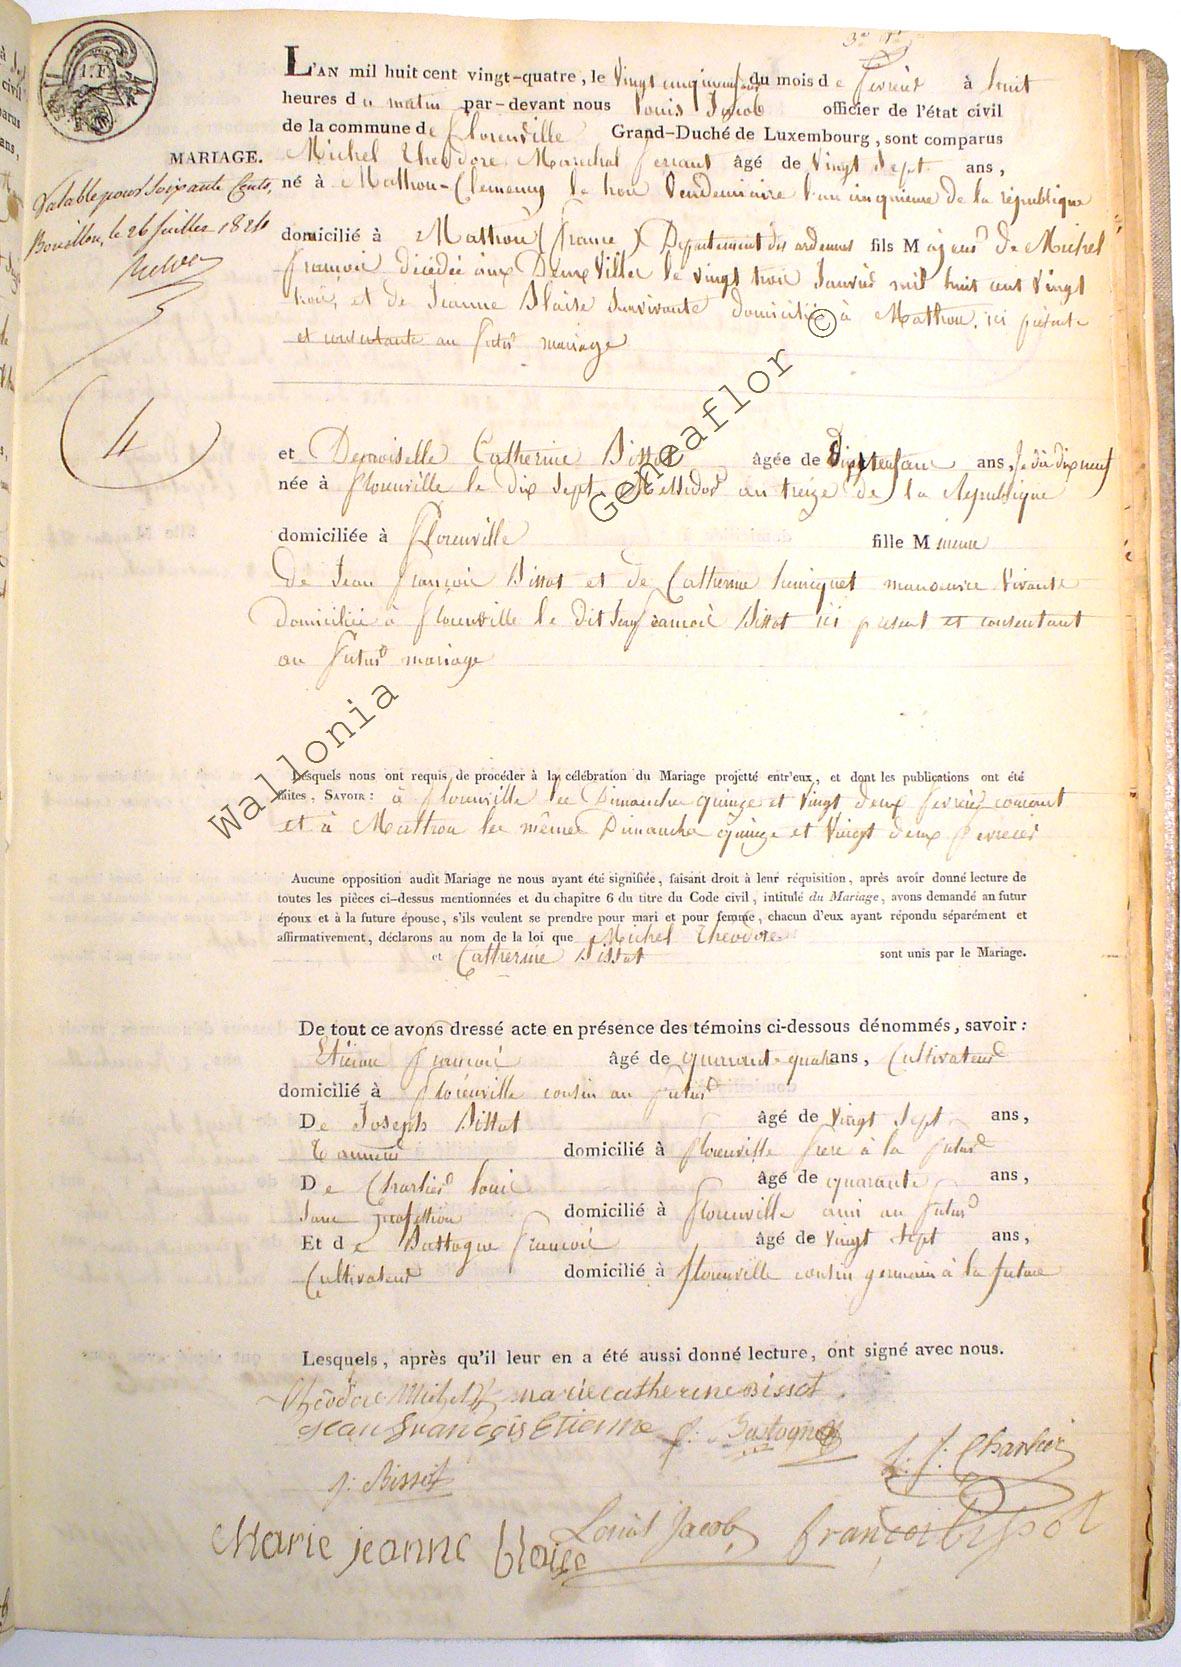 1. F.
3e
L'AN mil huit cent vingt-quatre, le Vingt cinquieme jour du mois de fevrier à huit
heures du matin par-devant nous Louis Jacob officier de l'état civil
de la commune de Florenville Grand-Duché de Luxembourg, sont comparus
MARIAGE.
Michel Theodore Marechal ferrant âgé de Vingt Sept ans,
né à Mathon-Clemency le trois Vendemiaire l'an cinquieme de la république
Valable pour Soixante Cents,
Bouillon, le 26 Juillet 1824
domicilié à Mathon (france) Departement des ardennes fils Majeur de Michel
francois décédé aux Deux Villes le vingt trois Janvier mil huit cent Vingt
trois, et de Jeanne Blaise Survivante domiciliée à Mathon, ici présente
et consentante au futur mariage
4
et Demoiselle Catherine Bissot âgée de ans, je dis dix neuf
née à florenville le dix Sept Messidor an treize de la République
domiciliée à Florenville fille Mineure
de Jean françois Bissot et de Catherine manoeuvre Vivante
domiciliée à florenville le dit Jean francois Bissot ici present et consentant
au futur mariage
Lesquels nous ont requis de procéder à la célébration du Mariage projetté entr'eux, et dont les publications ont été
faites, SAVOIR: à florenville les Dimanches quinze et vingt deux fevrier courant
et à Mathon les mêmes Dimanches quinze et Vingt deux fevrier
Aucune opposition audit Mariage ne nous ayant été signifiée, faisant droit à leur réquisition, après avoir donné lecture de
toutes les pièces ci-dessus mentionnées et du chapitre 6 du titre du Code civil, intitulé du Mariage, avons demandé an futur
époux et à la future épouse, s'ils veulent se prendre pour mari et pour femme, chacun d'eux ayant répondu séparément et
affirmativement, déclarons au nom de la loi que Michel Theodore
et Catherine Bissot sont unis par le Mariage.
De tout ce avons dressé acte en présence des témoins ci-dessous dénommés, savoir:
Etienne francois âgé de quarante-quatre ans, Cultivateur
domicilié à florenville cousin au futur
De Joseph Bissot âgé de Vingt Sept ans,
Tanneur domicilié à florenville frere à la futur
De Charlier Louis âgé de quarante ans,
Sans profession domicilié à florenville ami au futur
Et de Bastogne francois âgé de Vingt Sept ans,
Cultivateur domicilié à florenville cousin germain à la future
Lesquels, après qu'il leur en a été aussi donné lecture, ont signé avec nous.
théodore Michel marie catherine Bissot
jean françois Etienne f: Bastogne
L: J: Charlier
j: Bissot
Marie jeanne blaise Louis Jacob françois bissot
Wallonia Geneaflor ©